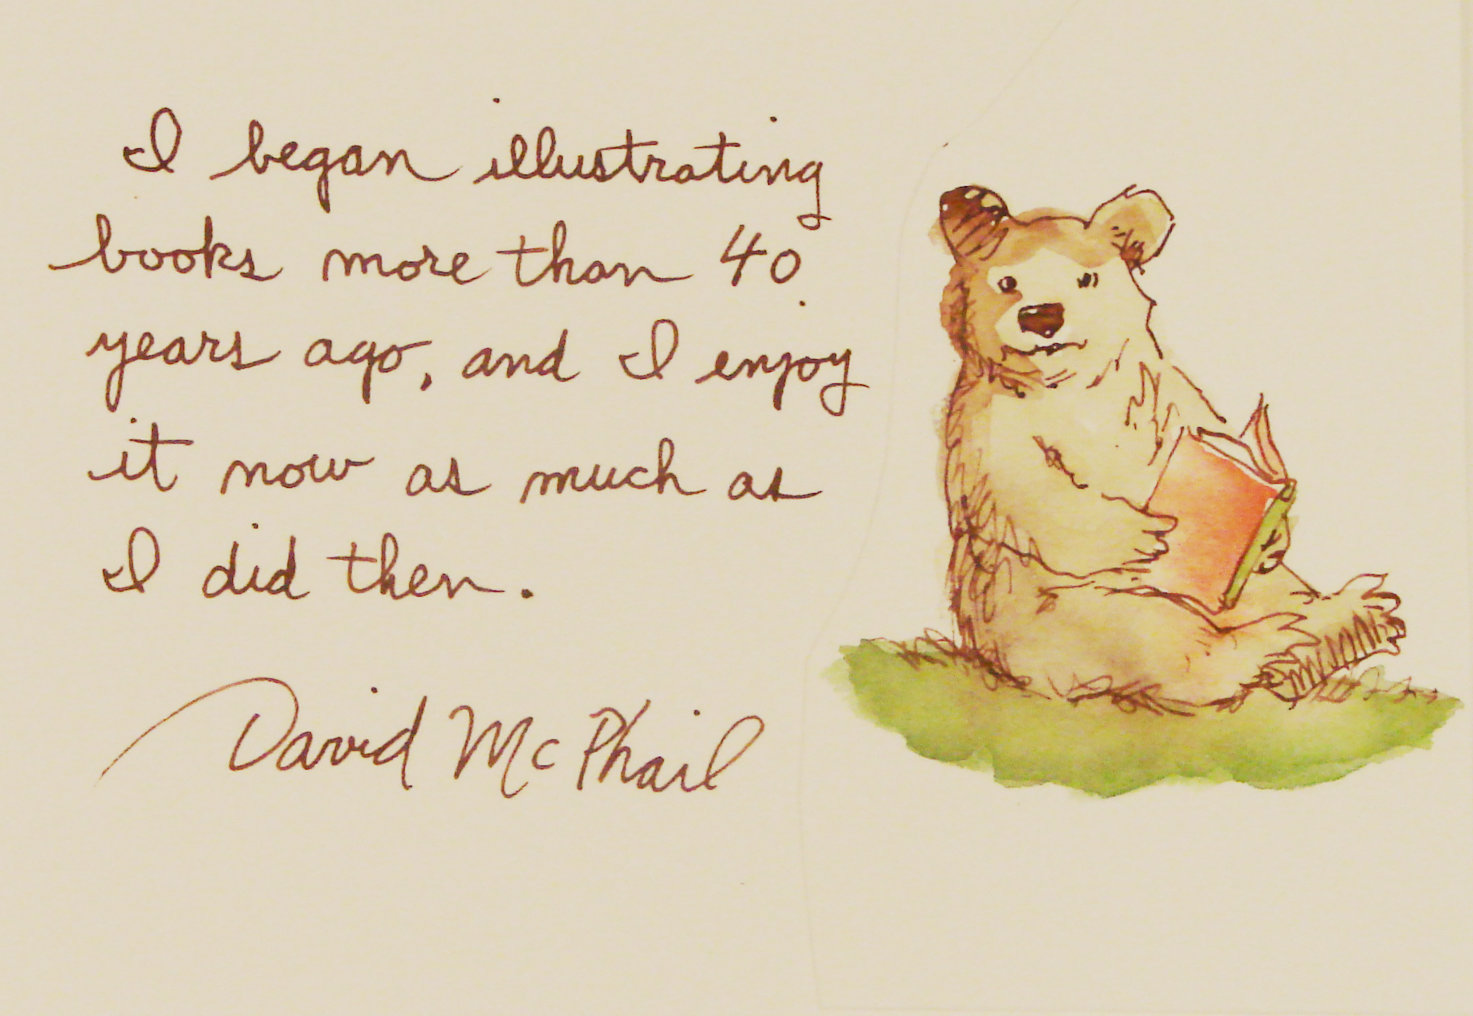 I began illustrating
books more than 40
years ago, and I enjoy
it now as much as
I did then.
David McPhail